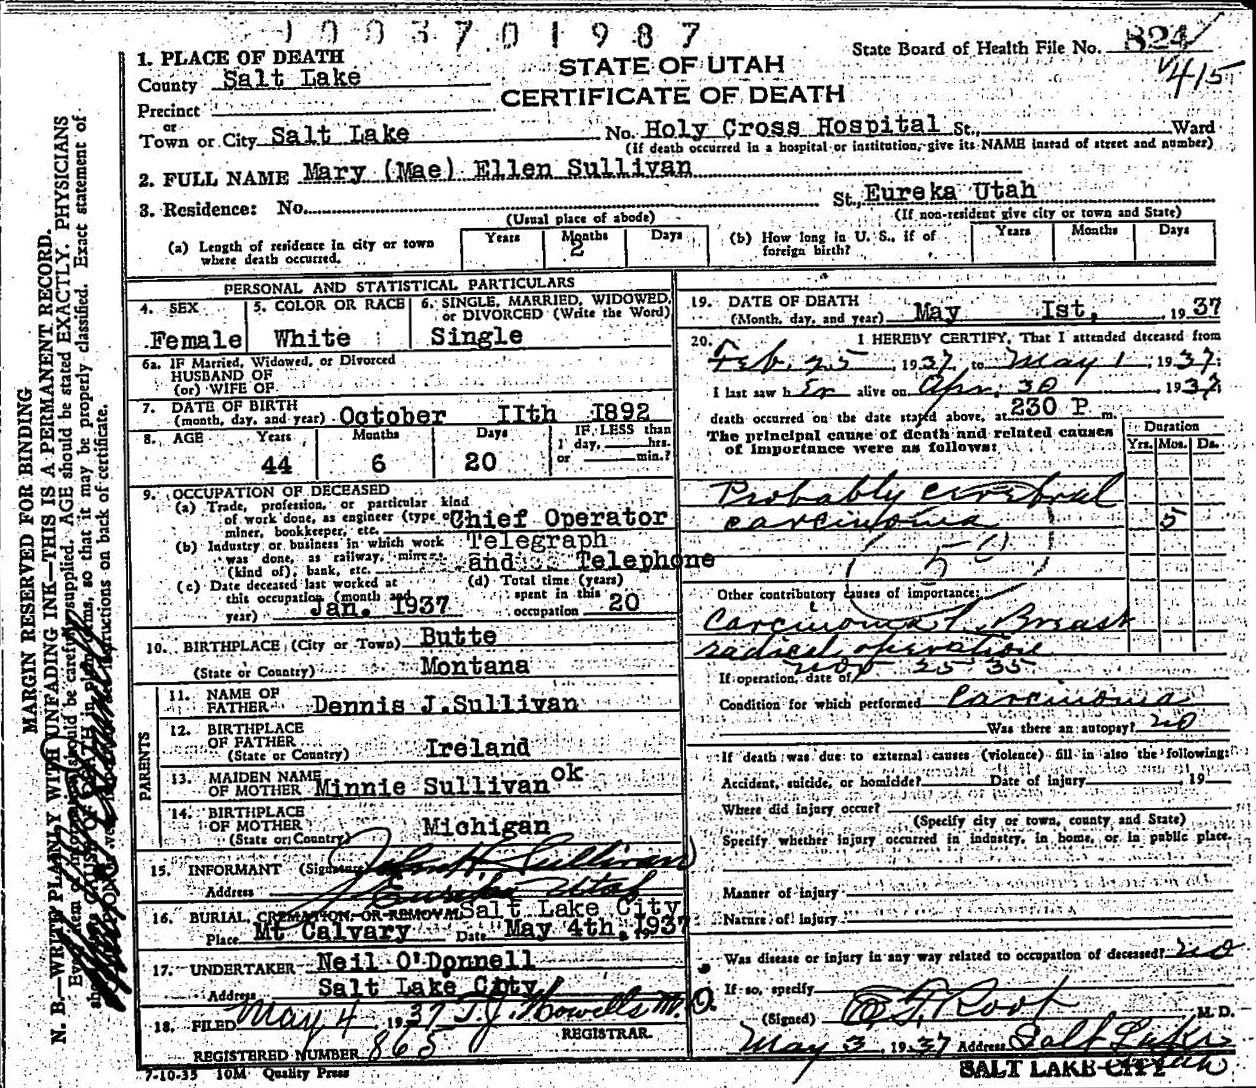 1003701987
State Board of Health File No. 824
V415
STATE OF UTAH
CERTIFICATE OF DEATH
1. PLACE OF DEATH
County Salt Lake
Precinct
or
Town or City Salt Lake No. Holy Cross Hospital St., Ward
(if death occurred in a hospital or institution, give its NAME instead of street and number)
2. FULL NAME Mary (Mae) Ellen Sullivan
3. Residence: No. St., Eureka Utah
(Usual place of abode) (If non-resident give city or town and State)
(a) Length of residence in city or town where death occurred. Years Months 2 Days
(b) How long in U. S., if of foreign birth? Years Months Days
PERSONAL AND STATISTICAL PARTICULARS
4. SEX Female
5. COLOR OR RACE White
6. SINGLE, MARRIED, WIDOWED, or DIVORCED (Write the Word) Single
6a. IF Married, Widowed, or Divorced
HUSBAND OF
(or) WIFE OF
7. DATE OF BIRTH
(month, day, and year) October IIth 1892
8. AGE Years 44 Months 6 Days 20
IF LESS than
1 day, hrs.
or min.?
9. OCCUPATION OF DECEASED
(a) Trade, profession, or particular kind
of work done, as engineer (type of Chief Operator
miner, bookkeeper, etc.
(b) Industry or business in which work Telegraph
was done, as railway, mines,
(kind of), bank, etc. and Telephone
(c) Date deceased last worked at
this occupation (month and
year) Jan. 1937
(d) Total time (years)
spent in this
occupation 20
10. BIRTHPLACE (City or Town) Butte
(State or Country) Montana
PARENTS
11. NAME OF
FATHER Dennis J.Sullivan
12. BIRTHPLACE
OF FATHER
(State or Country) Ireland
13. MAIDEN NAME
OF MOTHER Minnie Sullivan ok
14. BIRTHPLACE
OF MOTHER
(State or Country) Michigan
15. INFORMANT (Signature) John H Sullivan
Address Eureka Utah
16. BURIAL, CREMATION, OR REMOVAL Salt Lake City
Place Mt Calvary Date May 4th. 1937
17. UNDERTAKER Neil O'Donnell
Address Salt Lake City
18. FILED May 4, 1937 T.J. Howells M.D.
REGISTRAR.
REGISTERED NUMBER 865
7-10-35 10M Quality Press
19. DATE OF DEATH
(Month, day, and year) May Ist, 1937
20. I HEREBY CERTIFY, That I attended deceased from
Feb. 25, 1937, to May 1, 1937;
I last saw her alive on Apr. 30 1937
death occurred on the date stated above, at 230 P m.
The principal cause of death and related causes
of importance were as follows:
Duration
Yrs. Mos. Ds.
Probably cerebral
carcinoma 5
50
Other contributory causes of importance:
Carcinoma L. Breast
radical operation
If operation, date of Nov 25 35
Condition for which performed Carcinoma
Was there an autopsy? no
If death was due to external causes (violence) fill in also the following:
Accident, suicide, or homicide? Date of injury 19
Where did injury occur?
(Specify city or town, county and State)
Specify whether injury occurred in industry, in home, or in public place.
Manner of injury
Nature of injury
Was disease or injury in any way related to occupation of deceased? no
If so, specify
(Signed) E. F. Root M. D.
May 3, 1937 Address Salt Lake
SALT LAKE CITY Utah
MARGIN RESERVED FOR BINDING
N. B.—WRITE PLAINLY WITH UNFADING INK—THIS IS A PERMANENT RECORD.
Every item of information should be carefully supplied. AGE should be stated EXACTLY. PHYSICIANS
should state CAUSE OF DEATH in plain terms, so that it may be properly classified. Exact statement of
instructions on back of certificate.